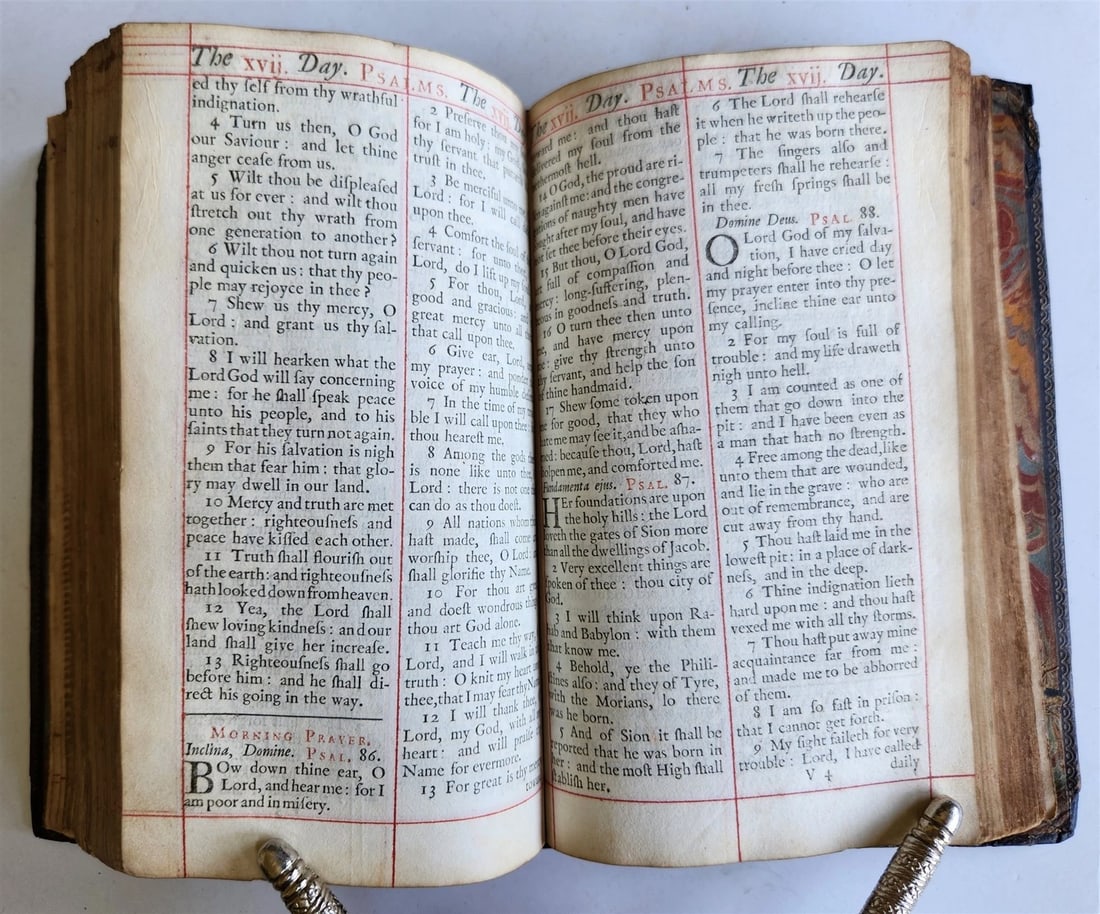 The xvij. Day. PSALMS.
ed thy ſelf from thy wrathful
indignation.
4 Turn us then, O God
our Saviour : and let thine
anger ceaſe from us.
5 Wilt thou be diſpleaſed
at us for ever : and wilt thou
ſtretch out thy wrath from
one generation to another?
6 Wilt thou not turn again
and quicken us : that thy peo-
ple may rejoyce in thee?
7 Shew us thy mercy, O
Lord : and grant us thy ſal-
vation.
8 I will hearken what the
Lord God will ſay concerning
me : for he ſhall ſpeak peace
unto his people, and to his
ſaints that they turn not again.
9 For his ſalvation is nigh
them that fear him : that glo-
ry may dwell in our land.
10 Mercy and truth are met
together : righteouſneſs and
peace have kiſſed each other.
11 Truth ſhall flouriſh out
of the earth : and righteouſneſs
hath looked down from heaven.
12 Yea, the Lord ſhall
ſhew loving kindneſs : and our
land ſhall give her increaſe.
13 Righteouſneſs ſhall go
before him : and he ſhall di-
rect his going in the way.
MORNING PRAYER.
Inclina, Domine. PSAL. 86.
BOw down thine ear, O
Lord, and hear me : for I
am poor and in miſery.
The xvij.
2 Preſerve
for I am holy : my God
thy ſervant that
truſt in thee.
3 Be merciful
Lord : for I will call
upon thee.
4 Comfort the ſoul of
ſervant : for unto thee
Lord, do I lift up my
5 For thou, Lord,
good and gracious : and
great mercy unto all
that call upon thee.
6 Give ear, Lord,
my prayer : and ponder
voice of my humble
7 In the time of my
ble I will call upon thee
thou heareſt me.
8 Among the gods
is none like unto thee,
Lord : there is not one
can do as thou doeſt.
9 All nations whom
haſt made, ſhall come
worſhip thee, O Lord :
ſhall glorifie thy Name.
10 For thou art
and doeſt wondrous
thou art God alone.
11 Teach me thy way,
Lord, and I will walk in
truth : O knit my heart
thee, that I may fear thy
12 I will thank thee,
Lord, my God, with all
heart : and will praiſe
Name for evermore.
13 For great is thy
The xvij. Day. PSALMS. The xvij. Day.
me : and thou haſt
my ſoul from the
hell.
14 O God, the proud are ri-
againſt me : and the congre-
of naughty men have
after my ſoul, and have
ſet thee before their eyes.
15 But thou, O Lord God,
full of compaſſion and
long-ſuffering, plen-
in goodneſs and truth.
16 O turn thee then unto
and have mercy upon
give thy ſtrength unto
ſervant, and help the ſon
of thine handmaid.
17 Shew ſome token upon
me for good, that they who
me may ſee it, and be aſha-
med : becauſe thou, Lord, haſt
me, and comforted me.
Fundamenta ejus. PSAL. 87.
HEr foundations are upon
the holy hills : the Lord
loveth the gates of Sion more
than all the dwellings of Jacob.
2 Very excellent things are
ſpoken of thee : thou city of
God.
3 I will think upon Ra-
hab and Babylon : with them
that know me.
4 Behold, ye the Phili-
ſtines alſo : and they of Tyre,
with the Morians, lo there
was he born.
5 And of Sion it ſhall be
reported that he was born in
her : and the moſt High ſhall
ſtabliſh her.
6 The Lord ſhall rehearſe
it when he writeth up the peo-
ple : that he was born there.
7 The ſingers alſo and
trumpeters ſhall he rehearſe :
all my freſh ſprings ſhall be
in thee.
Domine Deus. PSAL. 88.
O Lord God of my ſalva-
tion, I have cried day
and night before thee : O let
my prayer enter into thy pre-
ſence, incline thine ear unto
my calling.
2 For my ſoul is full of
trouble : and my life draweth
nigh unto hell.
3 I am counted as one of
them that go down into the
pit : and I have been even as
a man that hath no ſtrength.
4 Free among the dead, like
unto them that are wounded,
and lie in the grave : who are
out of remembrance, and are
cut away from thy hand.
5 Thou haſt laid me in the
loweſt pit : in a place of dark-
neſs, and in the deep.
6 Thine indignation lieth
hard upon me : and thou haſt
vexed me with all thy ſtorms.
7 Thou haſt put away mine
acquaintance far from me :
and made me to be abhorred
of them.
8 I am ſo faſt in priſon :
that I cannot get forth.
9 My ſight faileth for very
trouble : Lord, I have called
V 4 daily